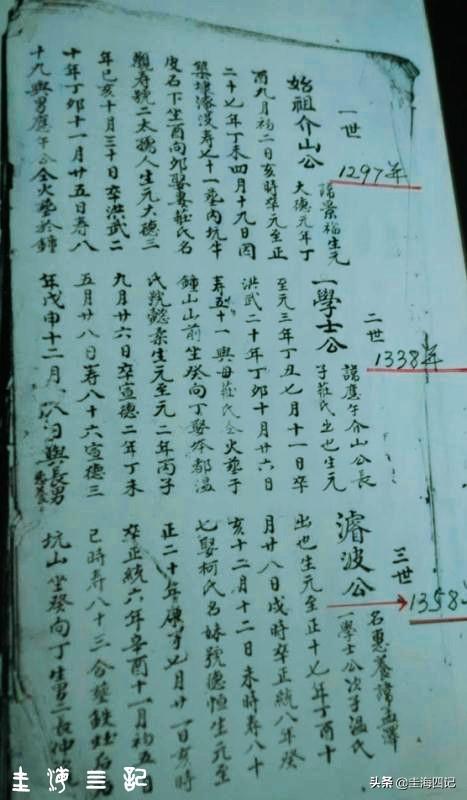 一世
1297年
諱景福生元
始祖介山公 大德元年丁
酉九月初二日亥時卒元至正
二十七年丁未四月十九日因
築埭没寿七十一塟内坑牛
皮石下坐酉向夘娶妻莊氏名
順寿號二太孺人生元大德三
年己亥十月三十日卒洪武二
十年丁夘十一月廿五日寿八
十九與男應午公仝火塟於鍾
二世
1338年
諱應午介山公長
一學士公 子莊氏出也生元
至元三年丁丑七月十一日卒
洪武二十年丁夘十月廿六日
寿五十一與母莊氏仝火塟于
鍾山山前坐癸向丁娶本都温
氏號懿柔生元至元二年丙子
九月廿六日卒宣德二年丁未
五月廿八日寿八十六宣德三
年戊申十二月日與長男
三世
1358
名惠養諱孟澤
濬波公 一學士公次子温氏
出也生元至正十七年丁酉十
月廿八日戌時卒正統八年癸
亥十二月十二日未時寿八十
七娶柯氏名妹號德恒生元至
正二十年庚子七月廿一日亥時
卒正統六年辛酉十一月初五日
己時寿八十三合塟鉄灶后
坑山坐癸向丁生男二長仲
圭海三記
头条 @圭海四记